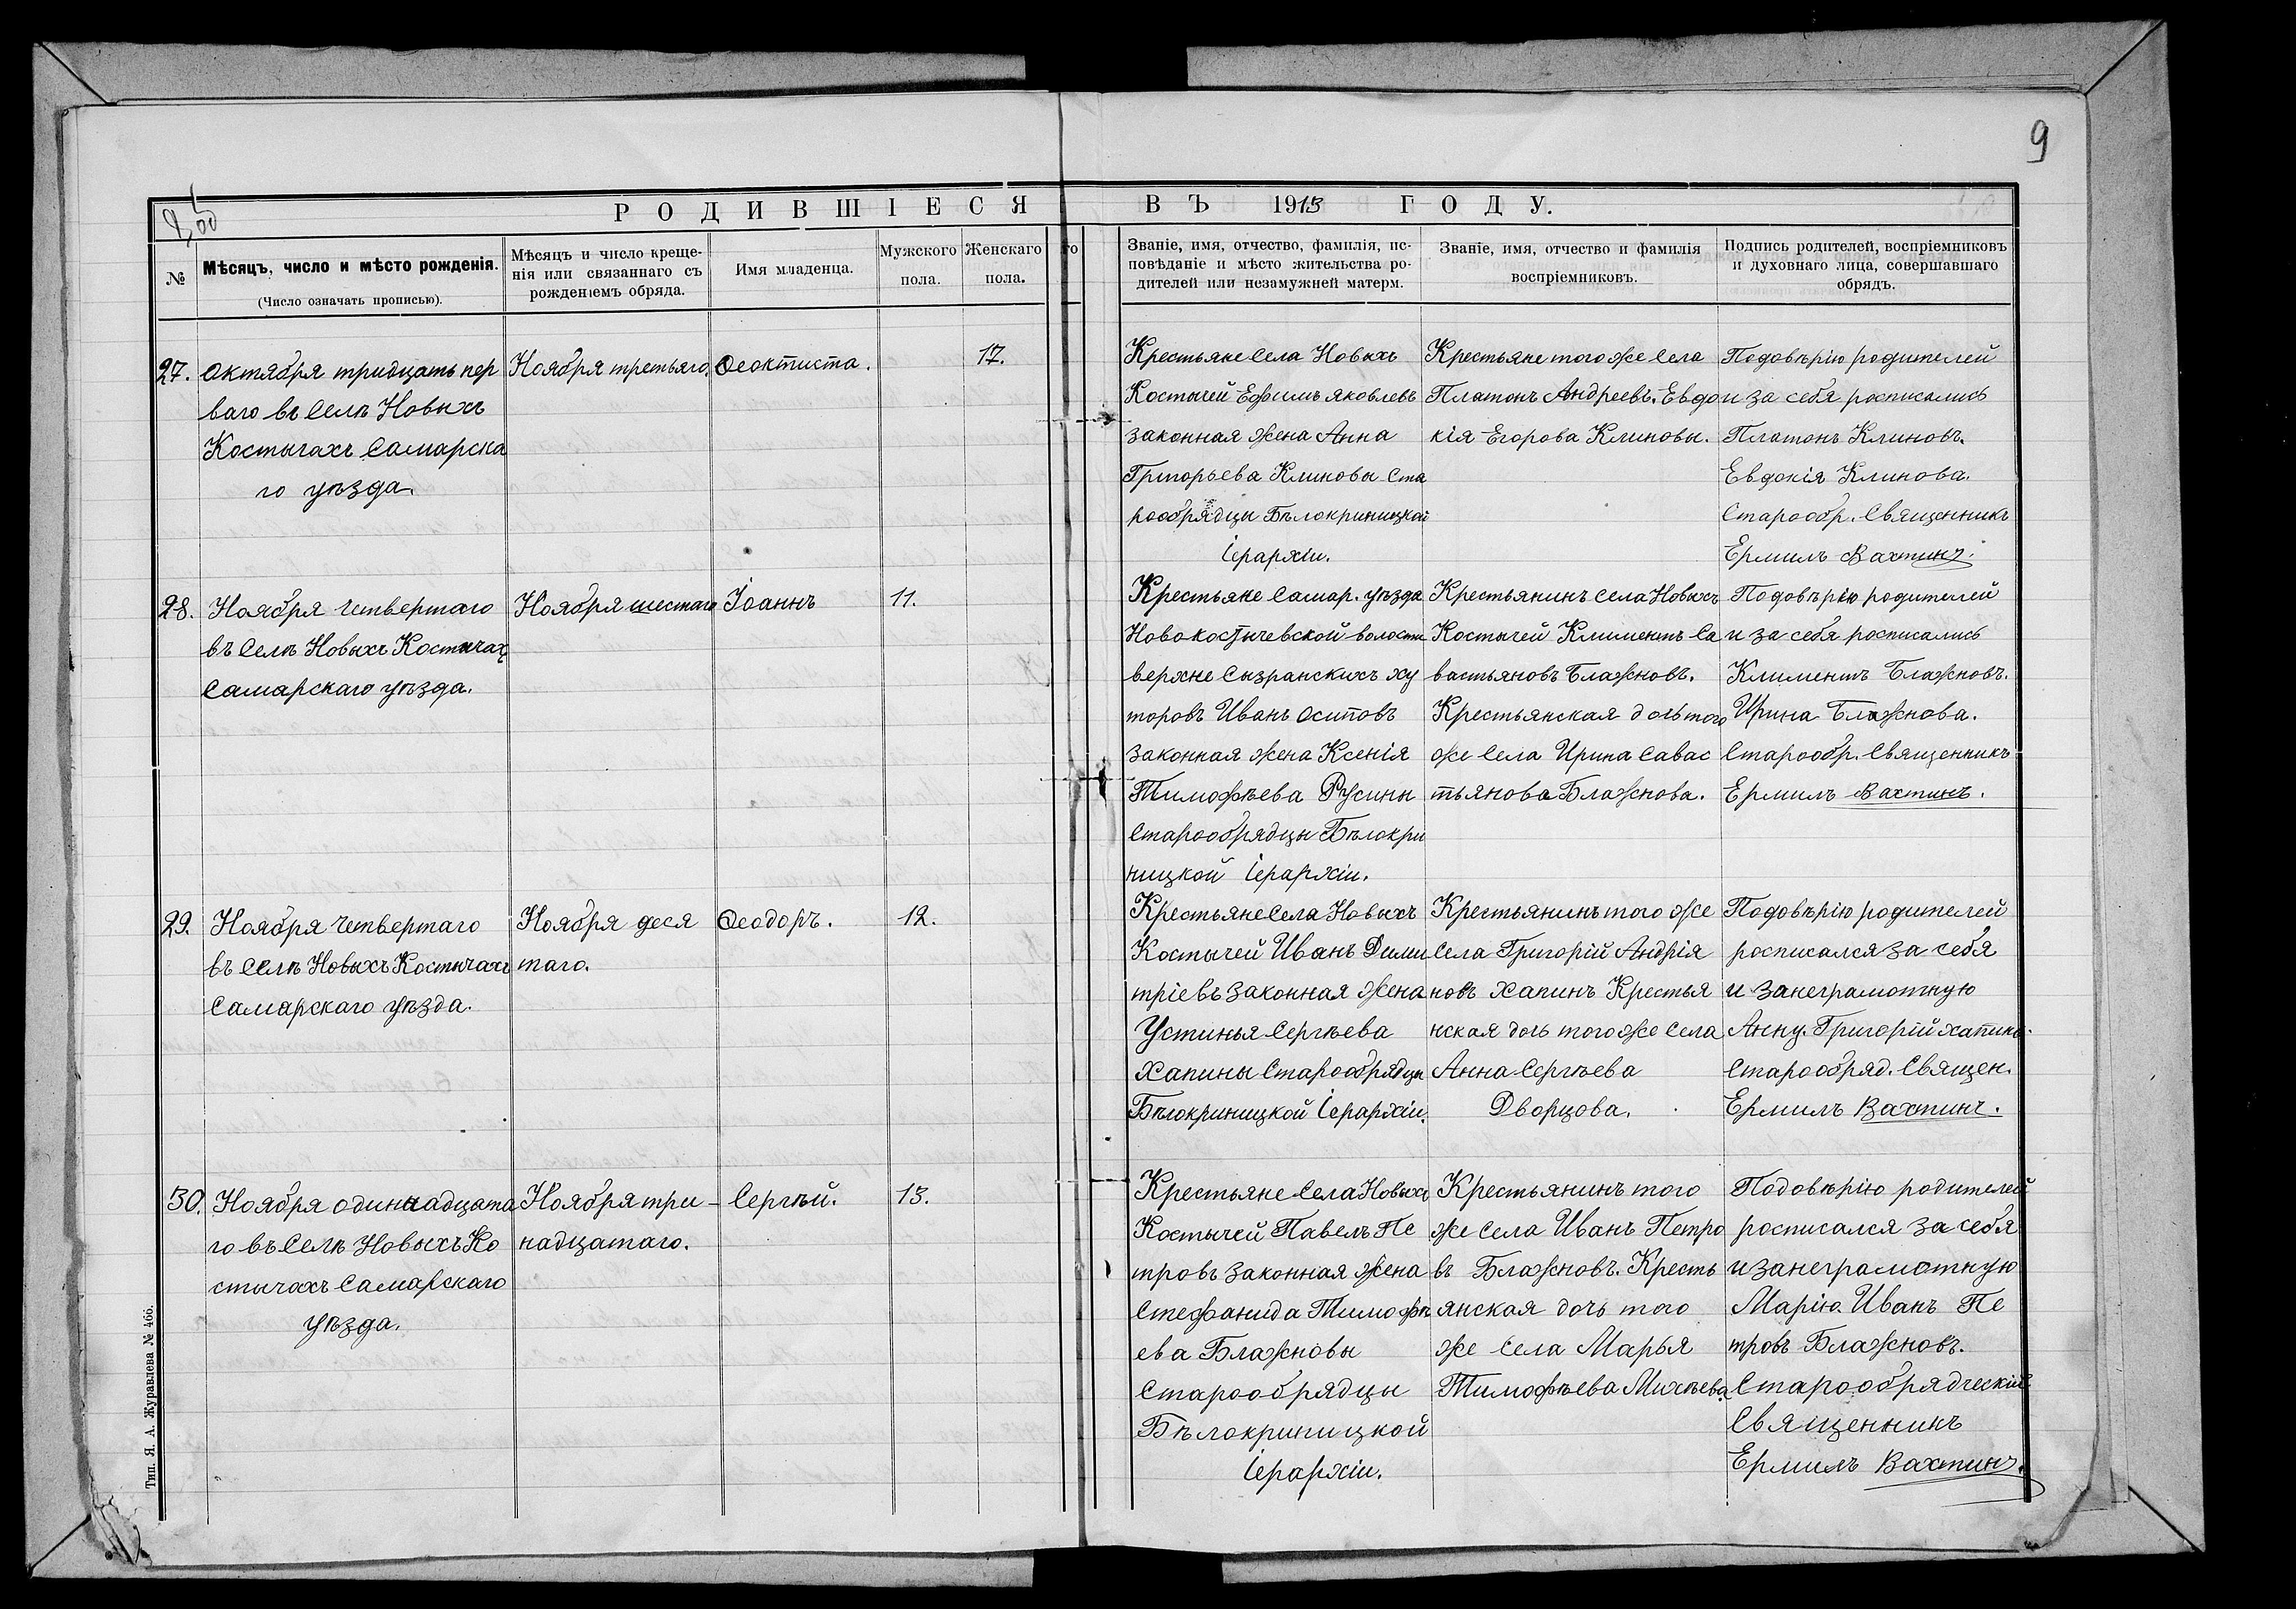 9
РОДИВШІЕСЯ ВЪ 1913 ГОДУ.
№
Мѣсяцъ, число и мѣсто рожденія.
(Число означать прописью).
Мѣсяцъ и число креще-
нія или связаннаго съ
рожденіемъ обряда.
Имя младенца.
Мужского
пола.
Женскаго
пола.
го
Званіе, имя, отчество, фамилія, ис-
повѣданіе и мѣсто жительства ро-
дителей или незамужней матери.
Званіе, имя, отчество и фамилія
воспріемниковъ.
Подпись родителей, воспріемниковъ
и духовнаго лица, совершавшаго
обрядъ.
27.
Октября тридцать пер
ваго въ Селѣ Новыхъ
Костычахъ Самарска
го уѣзда.
Ноября третьяго.
Ѳеоктиста.
17.
Крестьяне Села Новыхъ
Костычей Ефимъ Яковлевъ
законная жена Анна
Григорьева Климовы Ста
рообрядцы Бѣлокриницкой
Іерархіи.
Крестьяне того же Села
Платонъ Андреевъ. Евдо
кія Егорова Климовы.
Подовѣрію родителей
и за себя росписались
Платонъ Климовъ.
Евдокія Климова.
Старообр. Священникъ
Ермилъ Вахтинъ.
28.
Ноября четвертаго
въ Селѣ Новыхъ Костычахъ
Самарскаго уѣзда.
Ноября шестаго
Іоаннъ
11.
Крестьяне Самар. уѣзда
Новокостычевской волости
верхне Сызранскихъ ху
торовъ Иванъ Осиповъ
законная жена Ксенія
Тимофѣева Русины
Старообрядцы Бѣлокри
ницкой Іерархіи.
Крестьянинъ Села Новыхъ
Костычей Климентъ Са
вастьяновъ Блажновъ.
Крестьянская дочь того
же Села Ирина Савас
тьянова Блажнова.
Подовѣрію родителей
и за себя росписались
Климентъ Блажновъ.
Ирина Блажнова.
Старообр. Священникъ
Ермилъ Вахтинъ.
29.
Ноября четвертаго
въ Селѣ Новыхъ Костычахъ
Самарскаго уѣзда.
Ноября деся
таго.
Ѳеодоръ.
12.
Крестьяне Села Новыхъ
Костычей Иванъ Дими
тріевъ законная жена
Устинья Сергѣева
Хапины Старообрядцы
Бѣлокриницкой Іерархіи.
Крестьянинъ того же
Села Григорій Андрія
новъ Хапинъ Крестья
нская дочь того же Села
Анна Сергѣева
Дворцова.
Подовѣрію родителей
росписался за себя
и за неграмотную
Анну. Григорій Хапинъ.
Старообряд. Священ.
Ермилъ Вахтинъ.
30.
Ноября одиннадцата
го въ Селѣ Новыхъ Ко
стычахъ Самарскаго
уѣзда.
Ноября три-
надцатаго.
Сергѣй.
13.
Крестьяне Села Новыхъ
Костычей Павелъ Пе
тровъ законная жена
Стефанида Тимофѣ
ева Блажновы
Старообрядцы
Бѣлокриницкой
Іерархіи.
Крестьянинъ того
же Села Иванъ Петро
въ Блажновъ. Кресть
янская дочь того
же Села Марья
Тимофѣева Михѣева.
Подовѣрію родителей
росписался за себя
и за неграмотную
Марію. Иванъ Пе
тровъ Блажновъ.
Старообрядческій
Священникъ
Ермилъ Вахтинъ.
Тип. Я. А. Журавлева № 466.